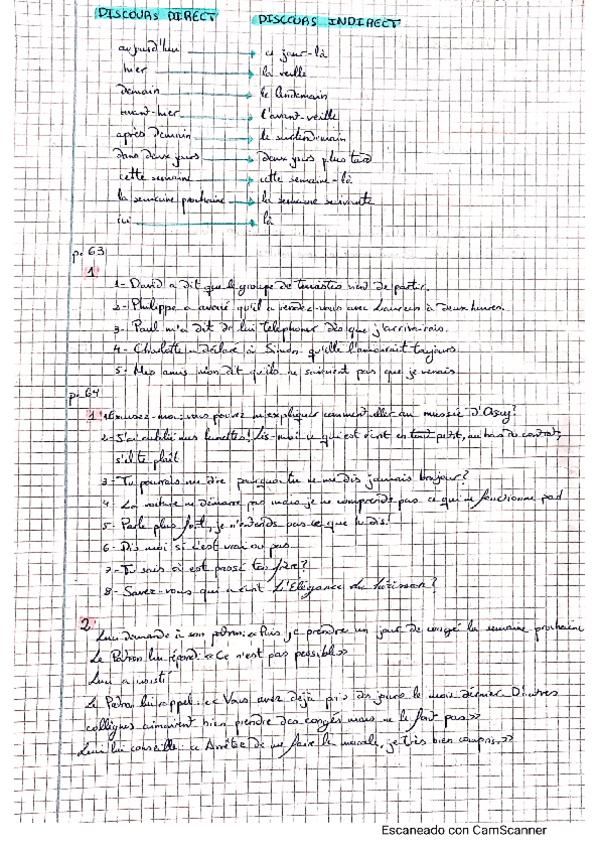 DISCOURS DIRECT DISCOURS INDIRECT
aujourd'hui → ce jour-là
hier → la veille
demain → le lendemain
avant-hier → l'avant-veille
après demain → le surlendemain
dans deux jours → deux jours plus tard
cette semaine → cette semaine-là
la semaine prochaine → la semaine suivante
ici → là
p. 63
1
1- David a dit que le groupe de touristes vient de partir.
2- Philippe a avoué qu'il a rendez-vous avec à deux heures.
3- Paul m'a dit de lui telephoner dès que j'arriverais.
4- Charlotte a déclaré à Simon qu'elle l'aimerait toujours
5- Mes amis m'on dit qu'ils ne savaient pas que je venais
p. 64
1 1- Excusez-moi, vous pouvez m'expliquer comment aller au musée d'Orsay?
2- J'ai oublié mes lunettes! Lis-moi ce qui est écrit en tout petit, au bas du contrat,
s'il te plaît
3- Tu pourrais me dire pourquoi tu ne me dis jamais bonjour?
4- La voiture ne démarre pas mais je ne comprends pas ce qui ne fonctionne pas
5- Parle plus fort, je n'entends pas ce que tu dis!
6- Dis moi si c'est vrai ou pas
7- Tu sais où est passé ton frère?
8- Savez-vous qui a écrit L'Elégance du hérisson?
2
demande à son patron: « Puis je prendre un jour de congé la semaine prochaine
Le Patron lui répond: « Ce n'est pas possible »
a insisté
Le Patron lui rappel: « Vous avez déjà pris des jours le mois dernier. D'autres
collègues aimeraient bien prendre des congés mais ne le font pas »
lui conseille: « Arrête de me faire la morale, je très bien compris. »
Escaneado con CamScanner